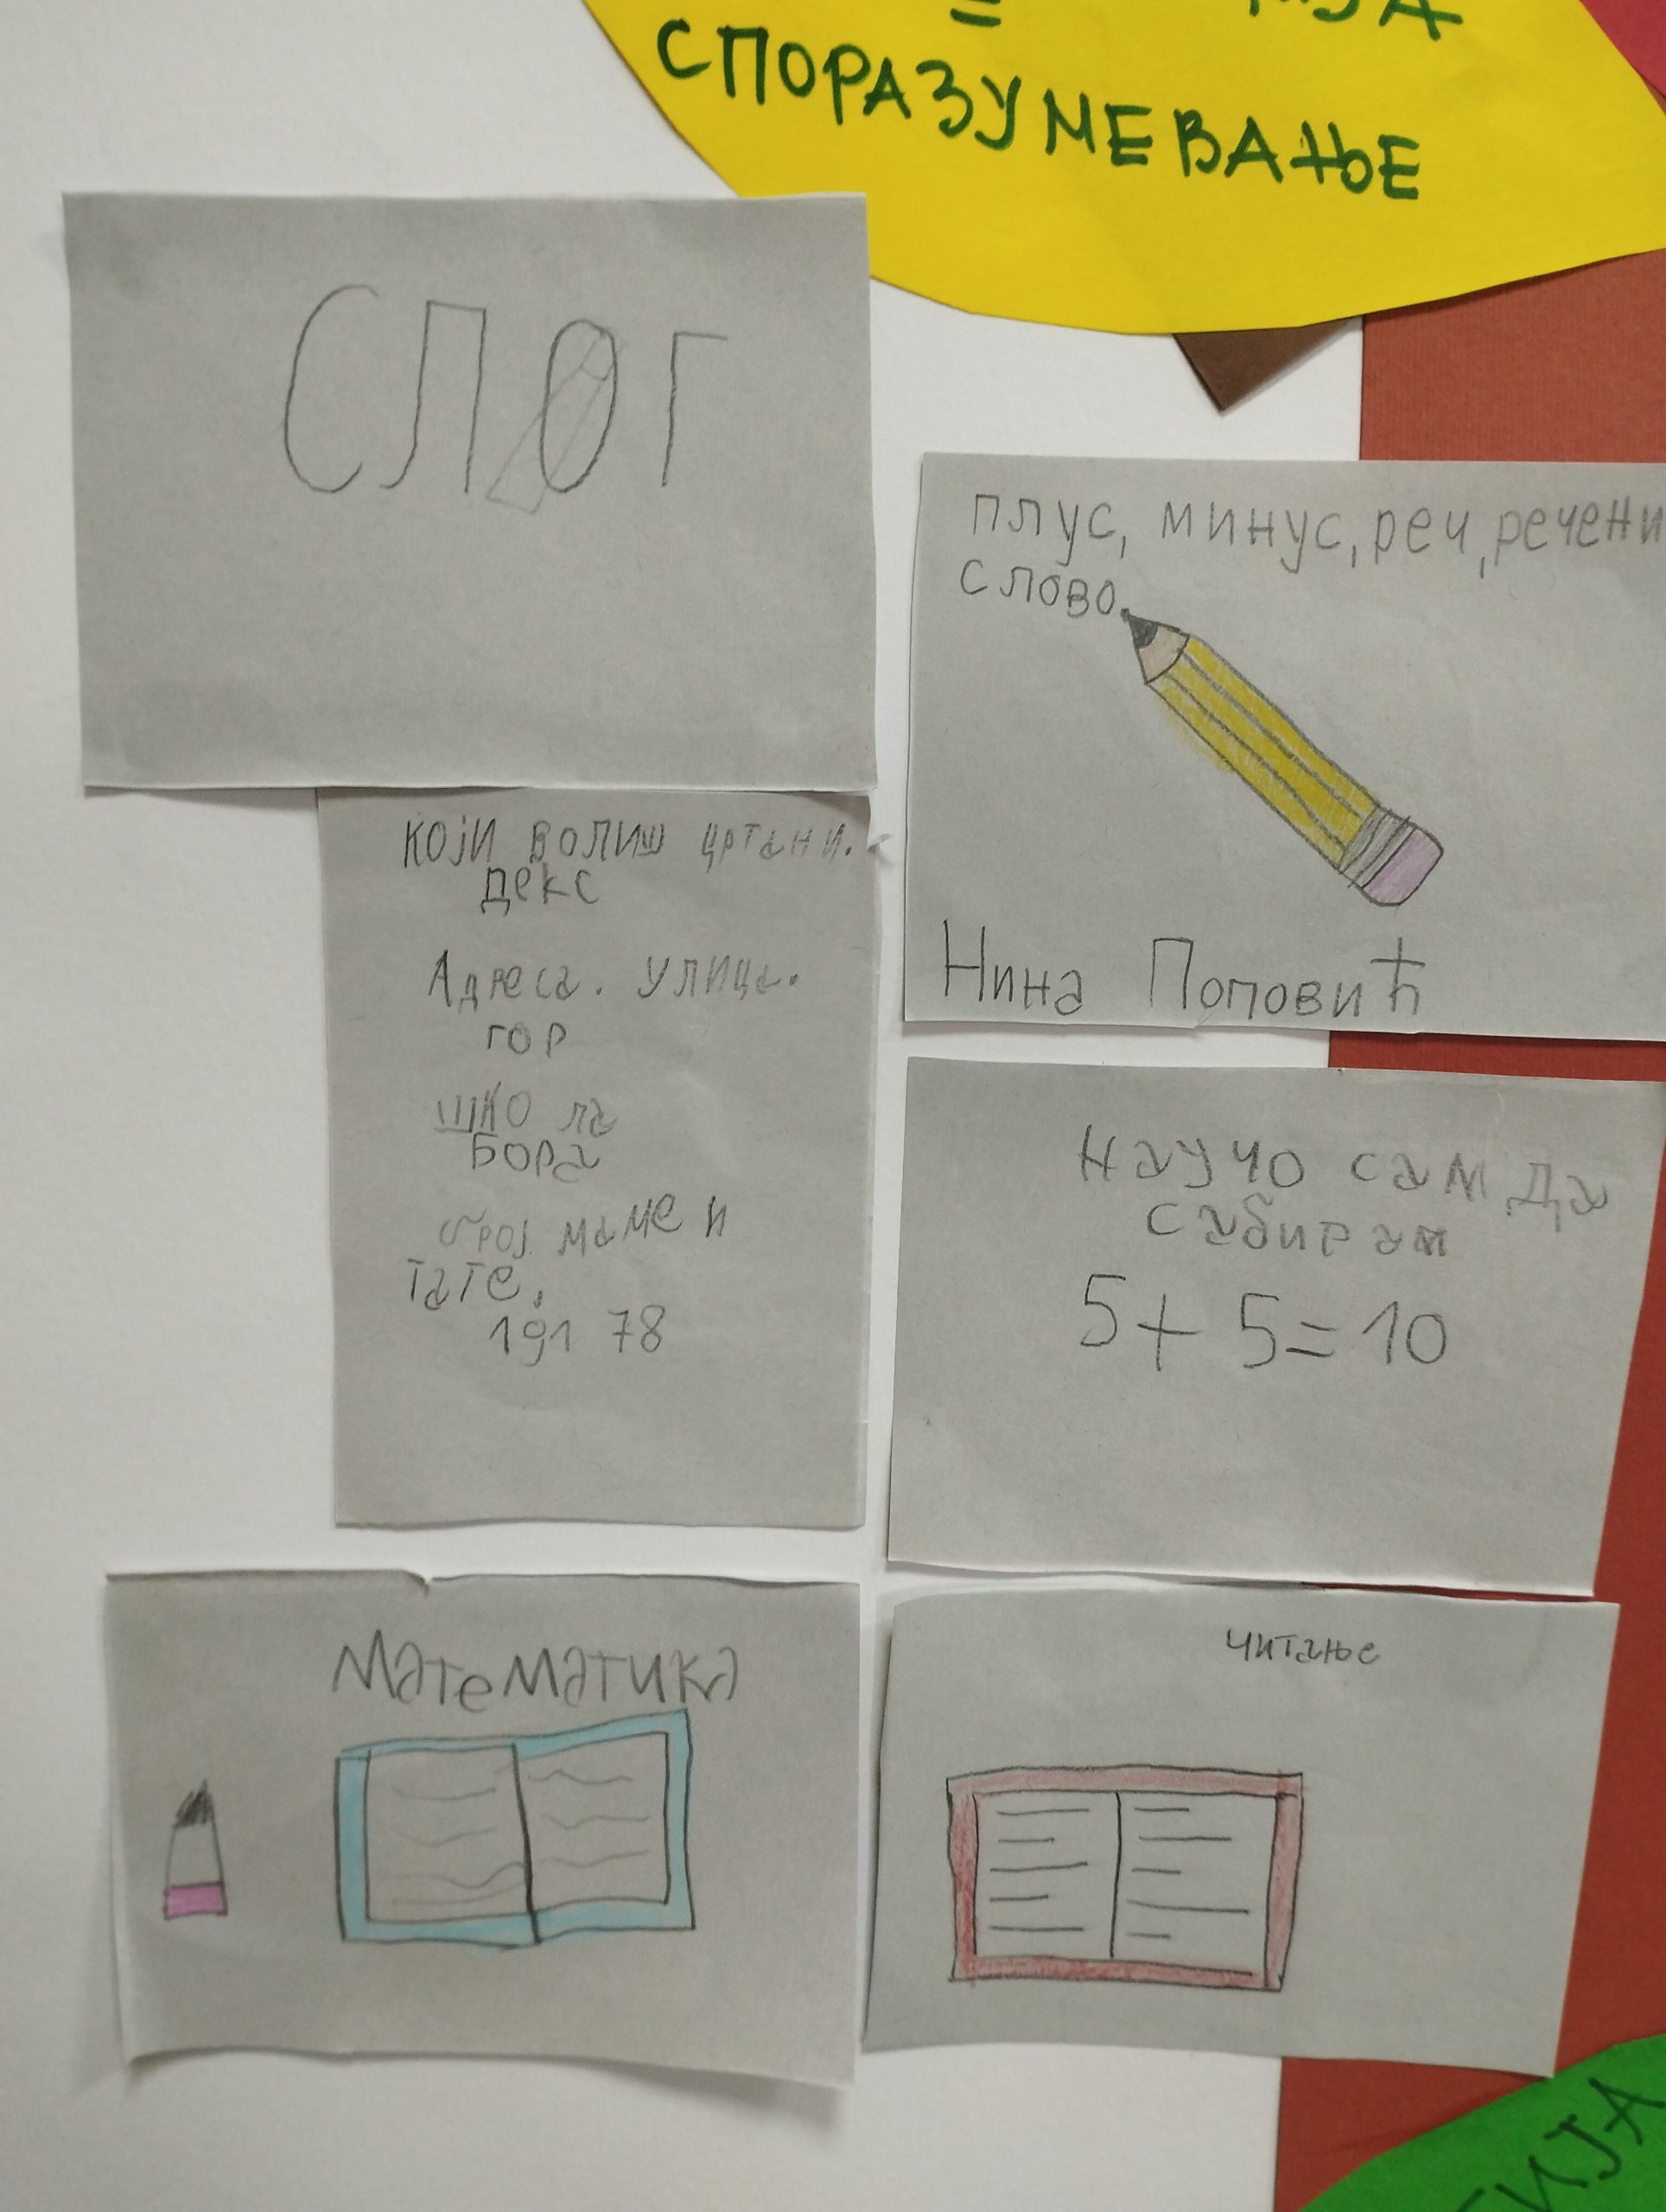 СПОРАЗУМЕВАЊЕ
СЛОГ
плус, минус, реч, речени
слово.
Нина Поповић
који волиш цртани.
декс
Адреса. улица.
гор
школа
Бора
број маме и
тате.
191 78
научо сам да
сабирам
5+5=10
Математика
читање
ИЈА